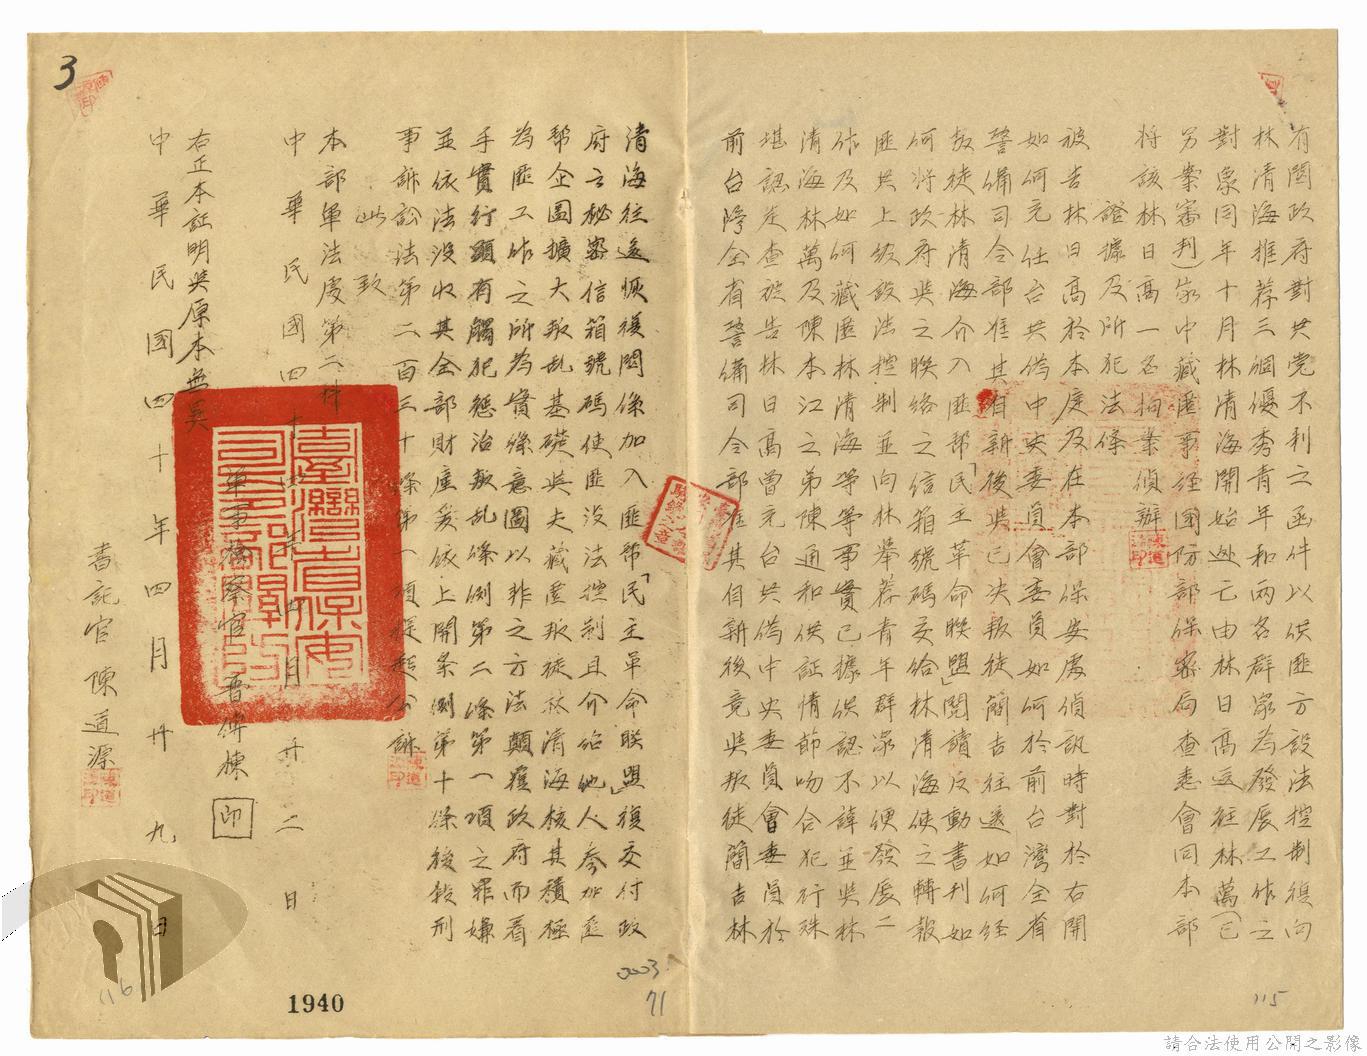 有関政府對共党不利之函件以供匪方設法控制復向
林清海推荐三個優秀青年和两名群眾為發展工作之
對象同年十月林清海開始逃亡由林日高返経林萬(已
另案審判)家中藏匿事経國防部保密局查悉會同本部
將該林日高一名拘案偵辦
證據及所犯法條
被告林日高於本庭及在本部保安處偵訊時對於右開
如何充任台共偽中央委員會委員如何於前台灣全省
警備司令部准其自新後与已决叛徒簡吉往返如何経
叛徒林清海介入匪帮「民主革命聯盟」閱讀反動書刊如
何將政府与之聯絡之信箱號碼交給林清海使之轉報
匪共上級設法控制並向林舉荐青年群眾以便發展工
作及如何藏匿林清海等等事實已據供認不諱並与林
清海林萬及陳本江之弟陳通和供証情節吻合犯行殊
堪認定查被告林日高曾充台共偽中央委員會委員於
前台灣全省警備司令部准其自新後竟与叛徒簡吉林
清海往返恢復関係加入匪帮「民主革命聯盟」復交付政
府之秘密信箱號碼使匪設法控制且介紹他人參加匪
帮企圖擴大叛乱基礎与夫藏匿叛徒林清海核其積極
為匪工作之所為實係意圖以非之方法顛覆政府而着
手實行顯有觸犯懲治叛乱條例第二條第一項之罪嫌
並依法没收其全部財產爰依上開条例第十條後段刑
事訴訟法第二百三十條第一項提起公訴
此致
本部軍法處第二科
中華民國四十年四月廿二日
軍事檢察官 印
右正本証明与原本無異
中華民國四十年四月廿九日
書記官陳道源
3
0003
71
115
116
1940
請合法使用公開之影像